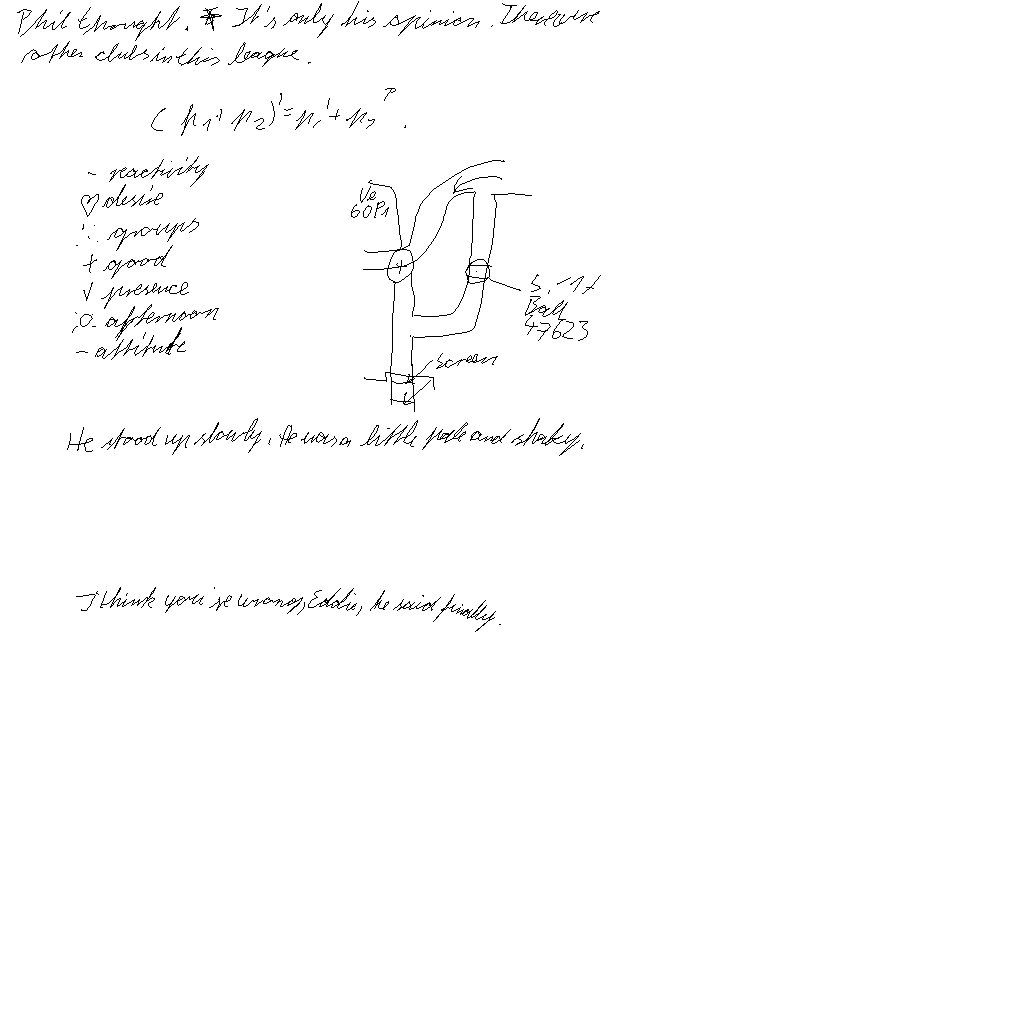 Phil thought. It's only his opinion. There are
other clubs in this league.
(p₁ + p₂)' = p₁' + p₂'.
- reactivity
♡ desire
∴ groups
+ good
√ presence
afternoon
- attitude
60P1
Ball
47623
Screen
He stood up slowly. He was a little pale and shaky.
I think you're wrong, Eddie, he said finally.